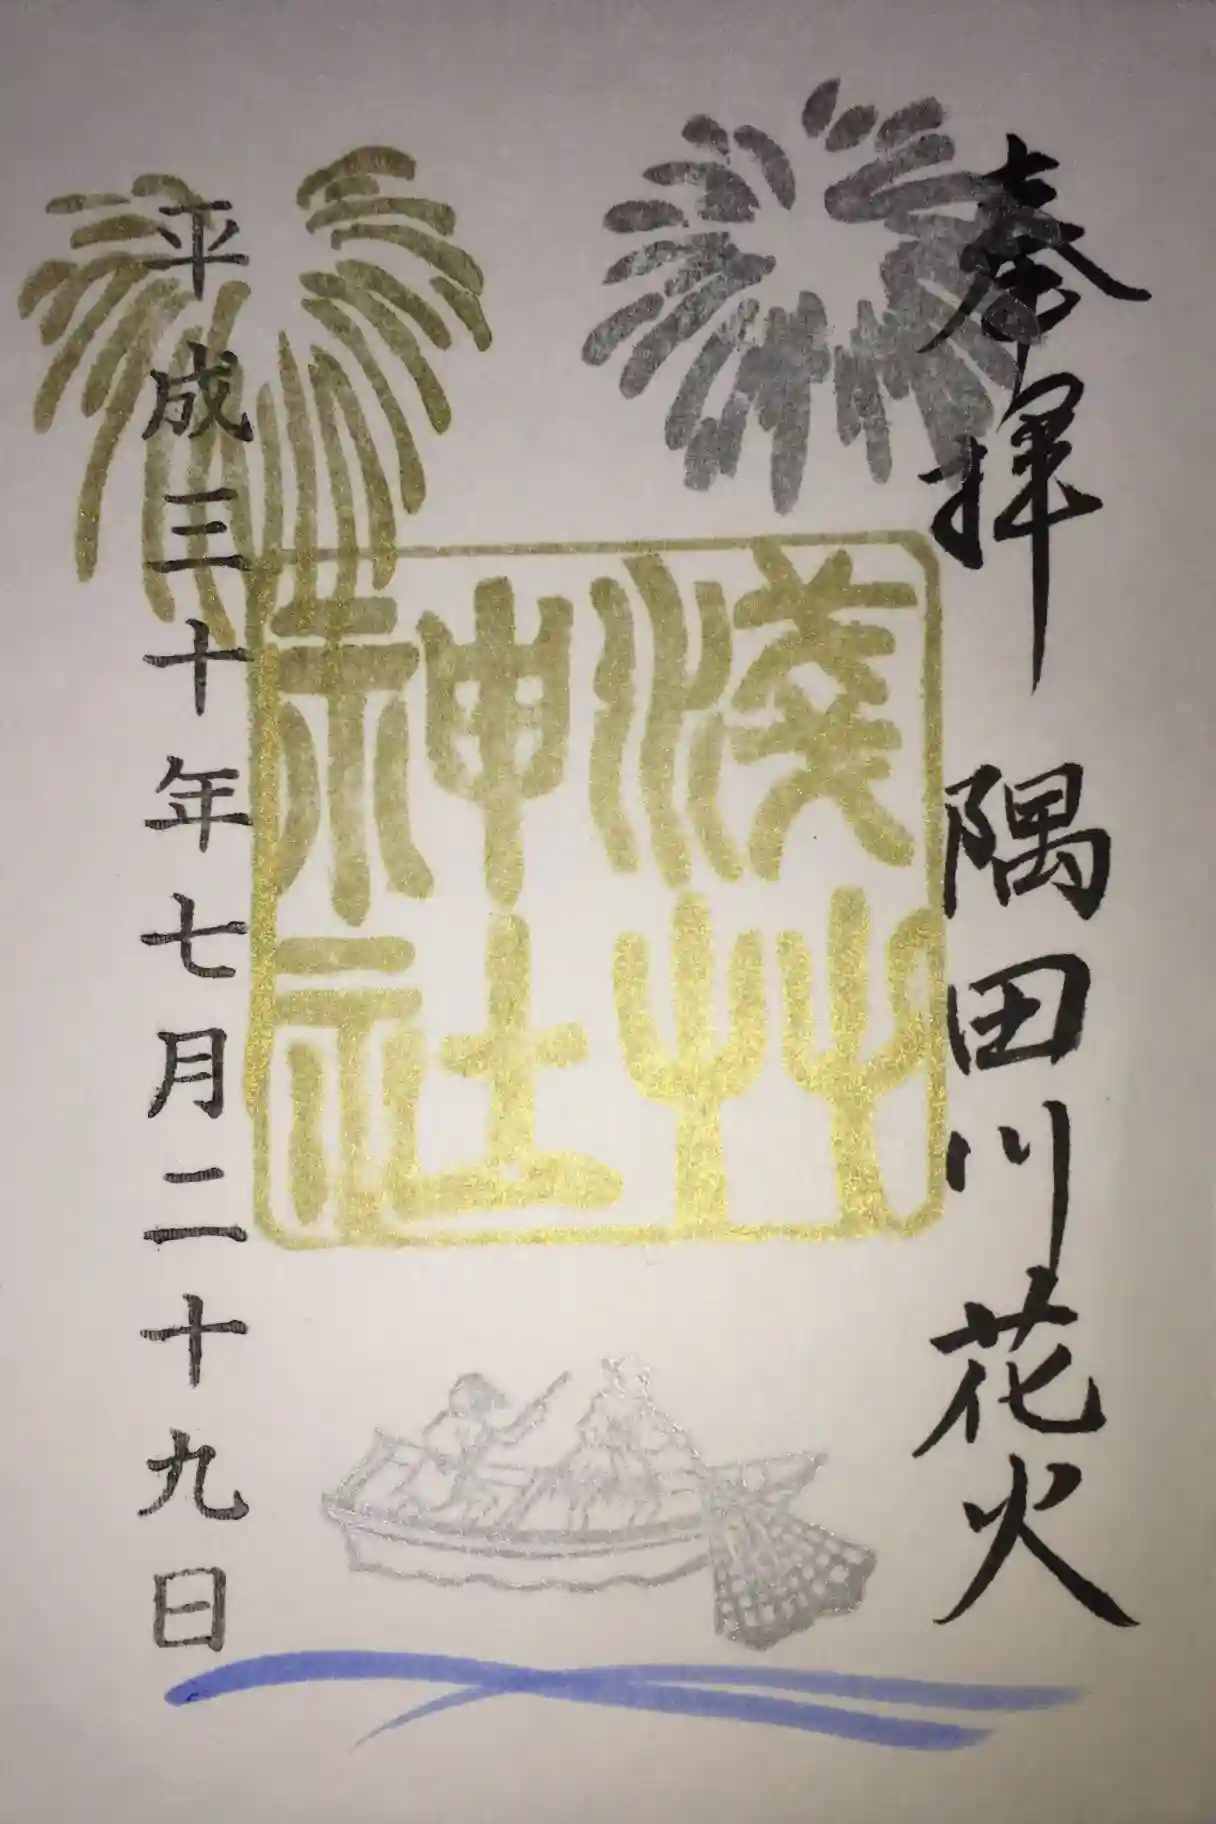 奉拝 隅田川花火
淺艸
神社
平成三十年七月二十九日